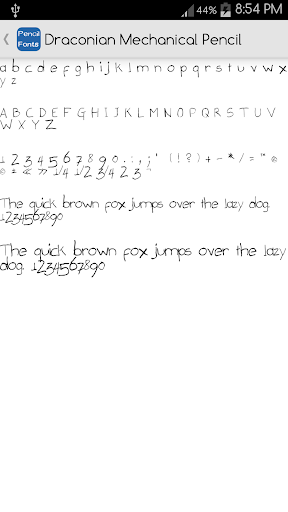 44% 8:54 PM
Pencil Fonts Draconian Mechanical Pencil
a b c d e f g h i j k l m n o p q r s t u v w x
y z
A B C D E F G H I J K L M N O P Q R S T U V
W X Y Z
1 2 3 4 5 6 7 8 9 0 . : , ; ' ( ! ? ) + - * / = " ©
® ± « » 1/4 1/2 3/4 2 3
The quick brown fox jumps over the lazy dog.
1234567890
The quick brown fox jumps over the lazy
dog. 1234567890